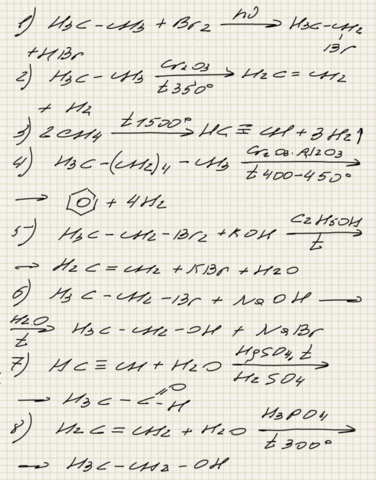 1) H3C-CH3 + Br2 —hν→ H3C-CH2
Br
+ HBr
2) H3C-CH3 —Cr2O3 t350°→ H2C=CH2
+ H2
3) 2CH4 —t1500°→ HC≡CH + 3H2↑
4) H3C-(CH2)4-CH3 —Cr2O3·Al2O3 t400-450°→
→ + 4H2
5) H3C-CH2-Br2 + KOH —C2H5OH t→
→ H2C=CH2 + KBr + H2O
6) H3C-CH2-Br + NaOH →
—H2O t→ H3C-CH2-OH + NaBr
7) HC≡CH + H2O —HgSO4, t H2SO4→
→ H3C-C=O-H
8) H2C=CH2 + H2O —H3PO4 t300°→
→ H3C-CH2-OH